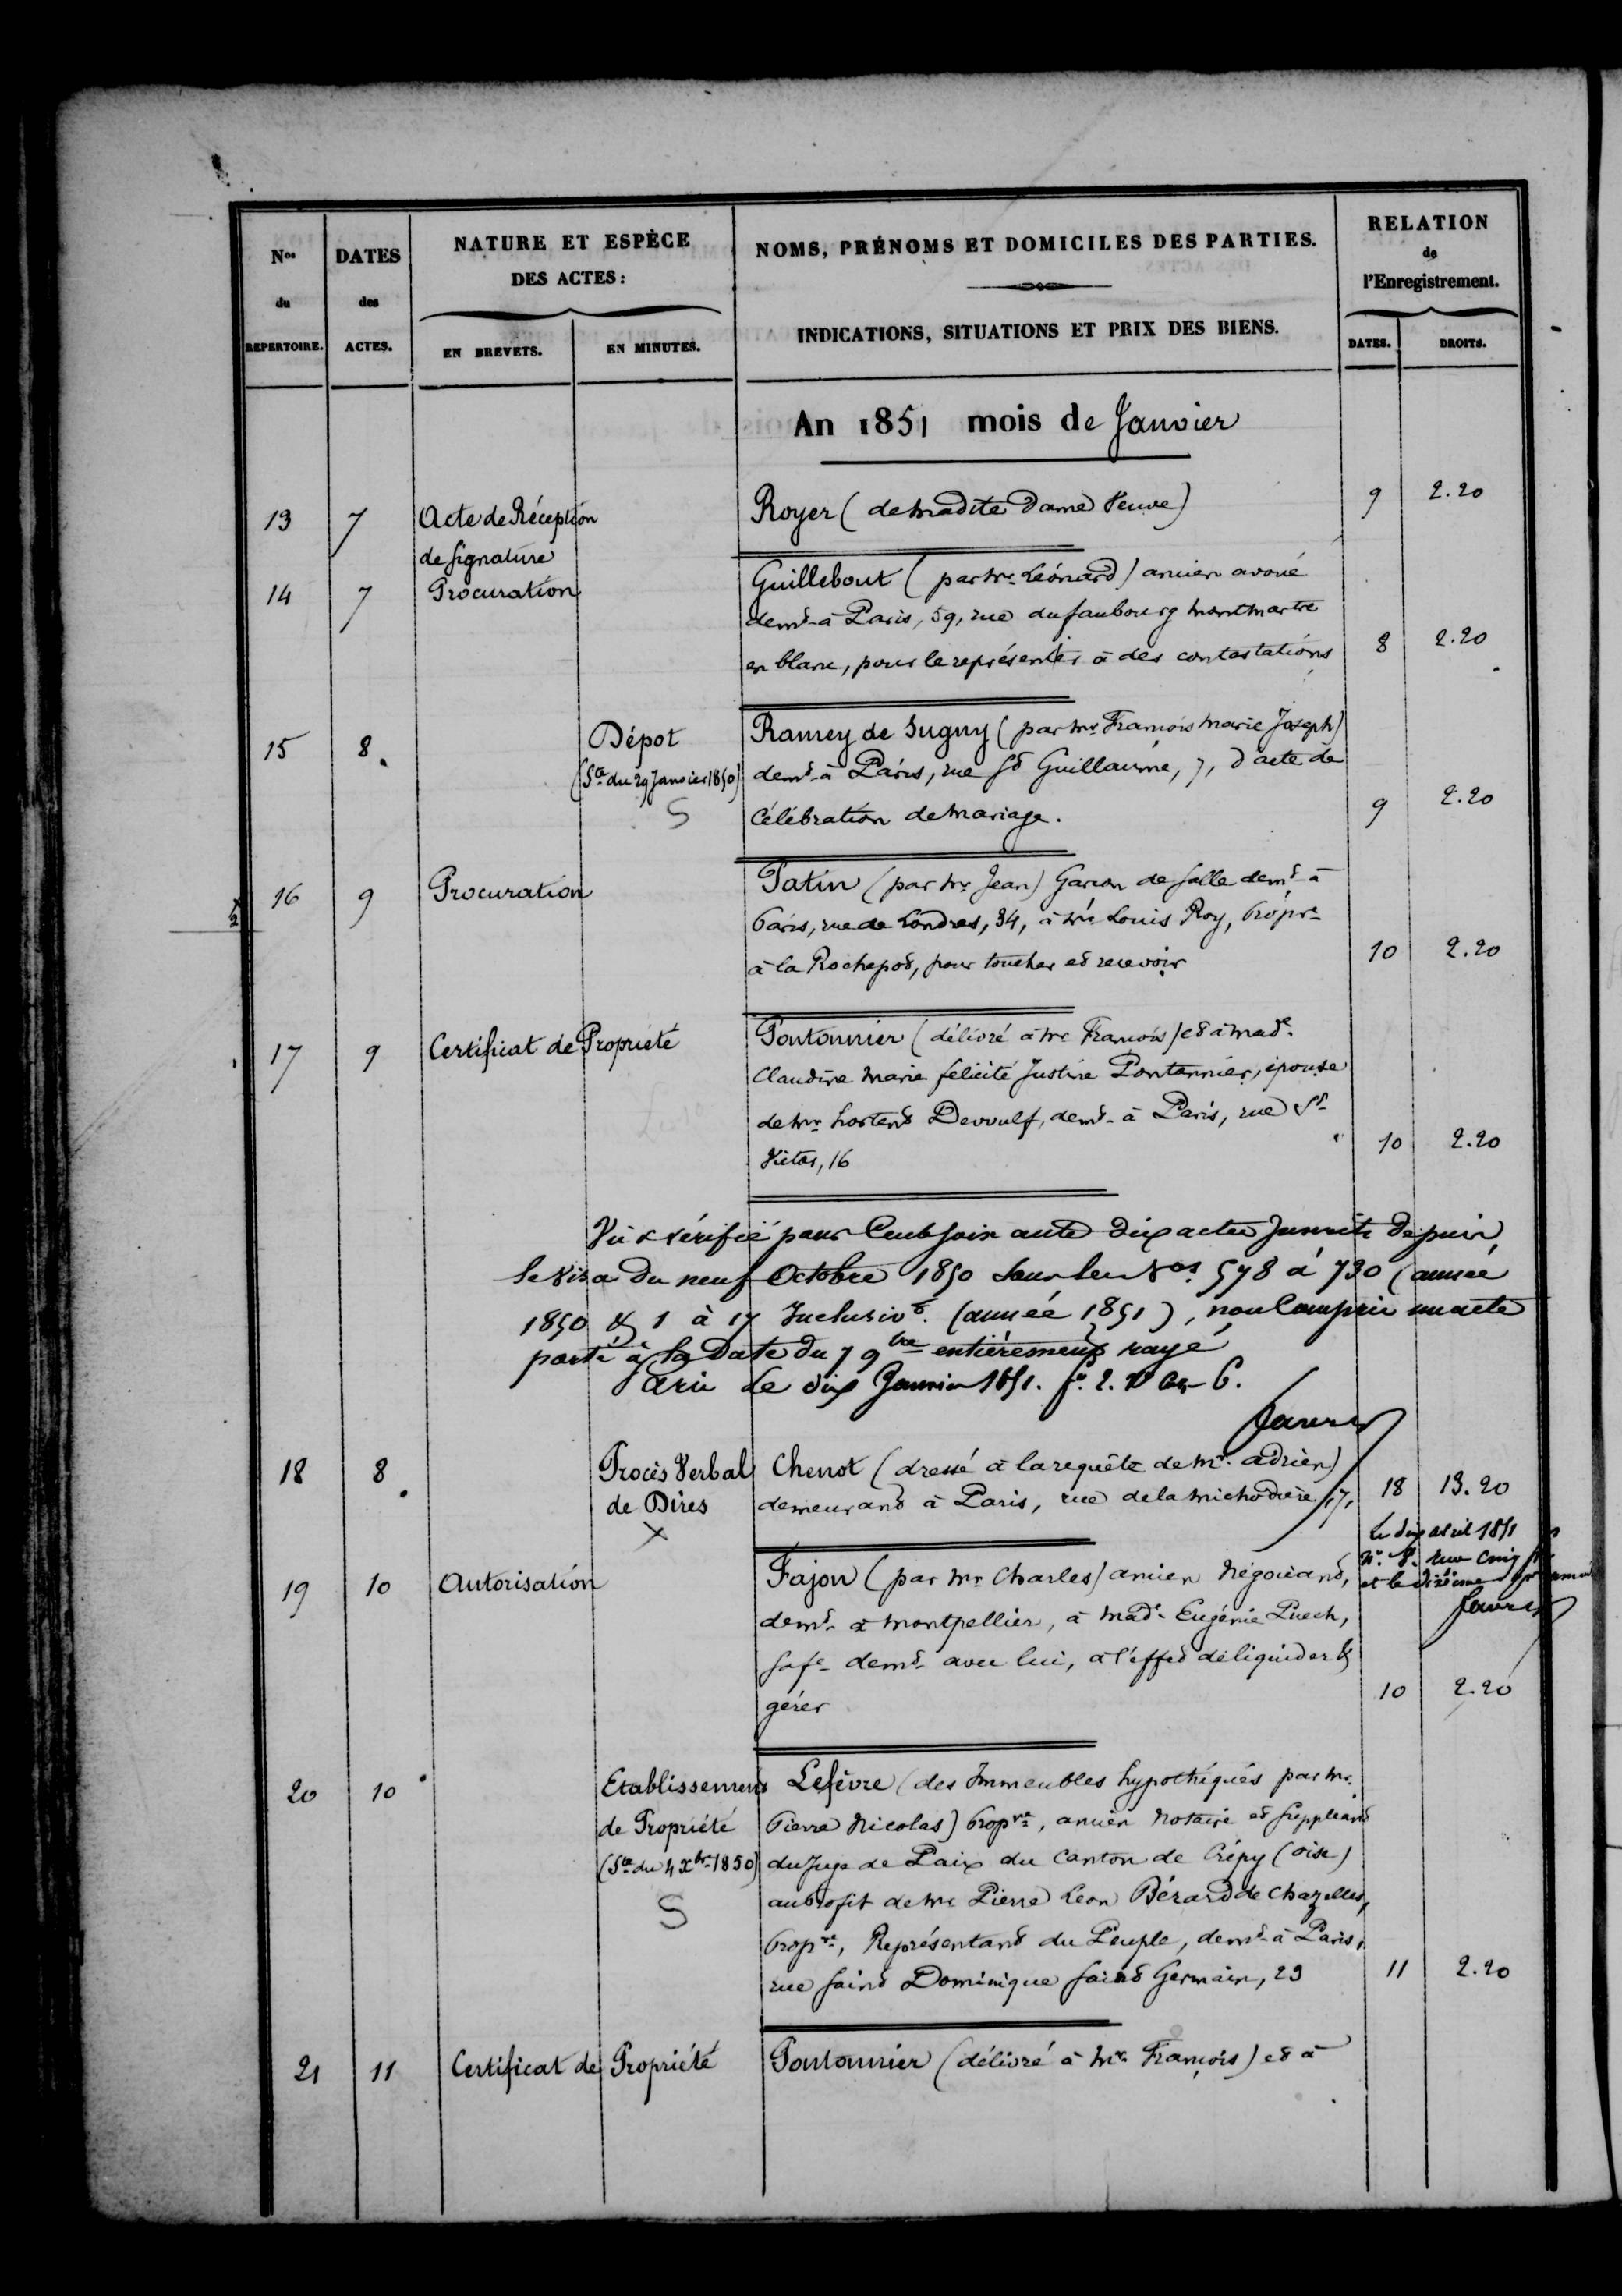 Nos du REPERTOIRE.
DATES des ACTES.
NATURE ET ESPÈCE
DES ACTES:
EN BREVETS.
EN MINUTES.
NOMS, PRÉNOMS ET DOMICILES DES PARTIES.
INDICATIONS, SITUATIONS ET PRIX DES BIENS.
RELATION
de
l'Enregistrement.
DATES.
DROITS.
An 1851 mois de Janvier
13 7 Acte de Réception Royer (de madite Dame Veuve) 9 2.20
de signature
14 7 Procuration Guillebout (par Mr. Léonard) ancien avoué
demt à Paris, 59, rue du faubourg montmartre
en blanc, pour le représenter à des contestations 8 2.20
15 8 Dépot Ramey de Sugny (par Mr François Marie Joseph)
(Ste du 29 Janvier 1850) demt à Paris, rue St Guillaume, 7, d'acte de
S célébration de mariage. 9 2.20
16 9 Procuration Patin (par Mr Jean) Garcon de salle demt à
Paris, rue de Londres, 34, à Mr Louis Roy, Propre
à la Rochepot, pour toucher et recevoir 10 2.20
17 9 Certificat de Propriété Pontonnier (délivré à Mr François) et à made
Claudine Marie félicité Justine Pontonnier, épouse
de Mr hortent Devvulf, demt à Paris, rue St
Victor, 16 10 2.20
Vu & vérifié pour Cent soixante dix actes Inscrits depuis
le visa du neuf Octobre 1850 sous les Nos 578 à 730 (année
1850 & 1 à 17 Inclusivt. (année 1851), non Compris un acte
porté à la date du 7 9bre entièrement rayé
Paris le dix Janvier 1851. fo. 2. Vo Cse 6.
18 8 Procès Verbal Chenot (dressé à la requête de Mr. adrien)
de Dires demeurant à Paris, rue de la michodière, 7, 18 13.20
X
Le dix avril 1851
19 10 Autorisation Fajon (par Mr Charles) ancien Négociant,
et le dixième
demt à montpellier, à Made Eugénie Puech,
sa fe demt avec lui, à l'effet de liquider &
gérer 10 2.20
20 10 Etablissement Lefèvre (des Immeubles hypothéqués par Mr.
de Propriété Pierre Nicolas) Propre, ancien Notaire et suppléant
(Ste du 4 Xbre 1850) du Juge de Paix du Canton de Crépy (oise)
S au profit de Mr Pierre Léon Bérard de Chazelles,
Propre, Représentant du Peuple, demt à Paris,
rue saint Dominique saint Germain, 29 11 2.20
21 11 Certificat de Propriété Pontonnier (délivré à Mr François) et à